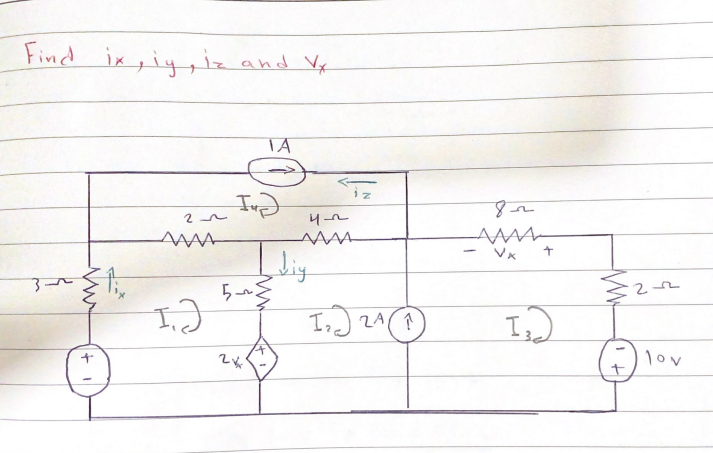 Find ix, iy, iz and Vx
1A
iz
I4
2Ω
4Ω
8Ω
- Vx +
3Ω
ix
5Ω
iy
2Ω
I1
I2
2A
I3
2Vx
+
-
+
-
-
+
10v